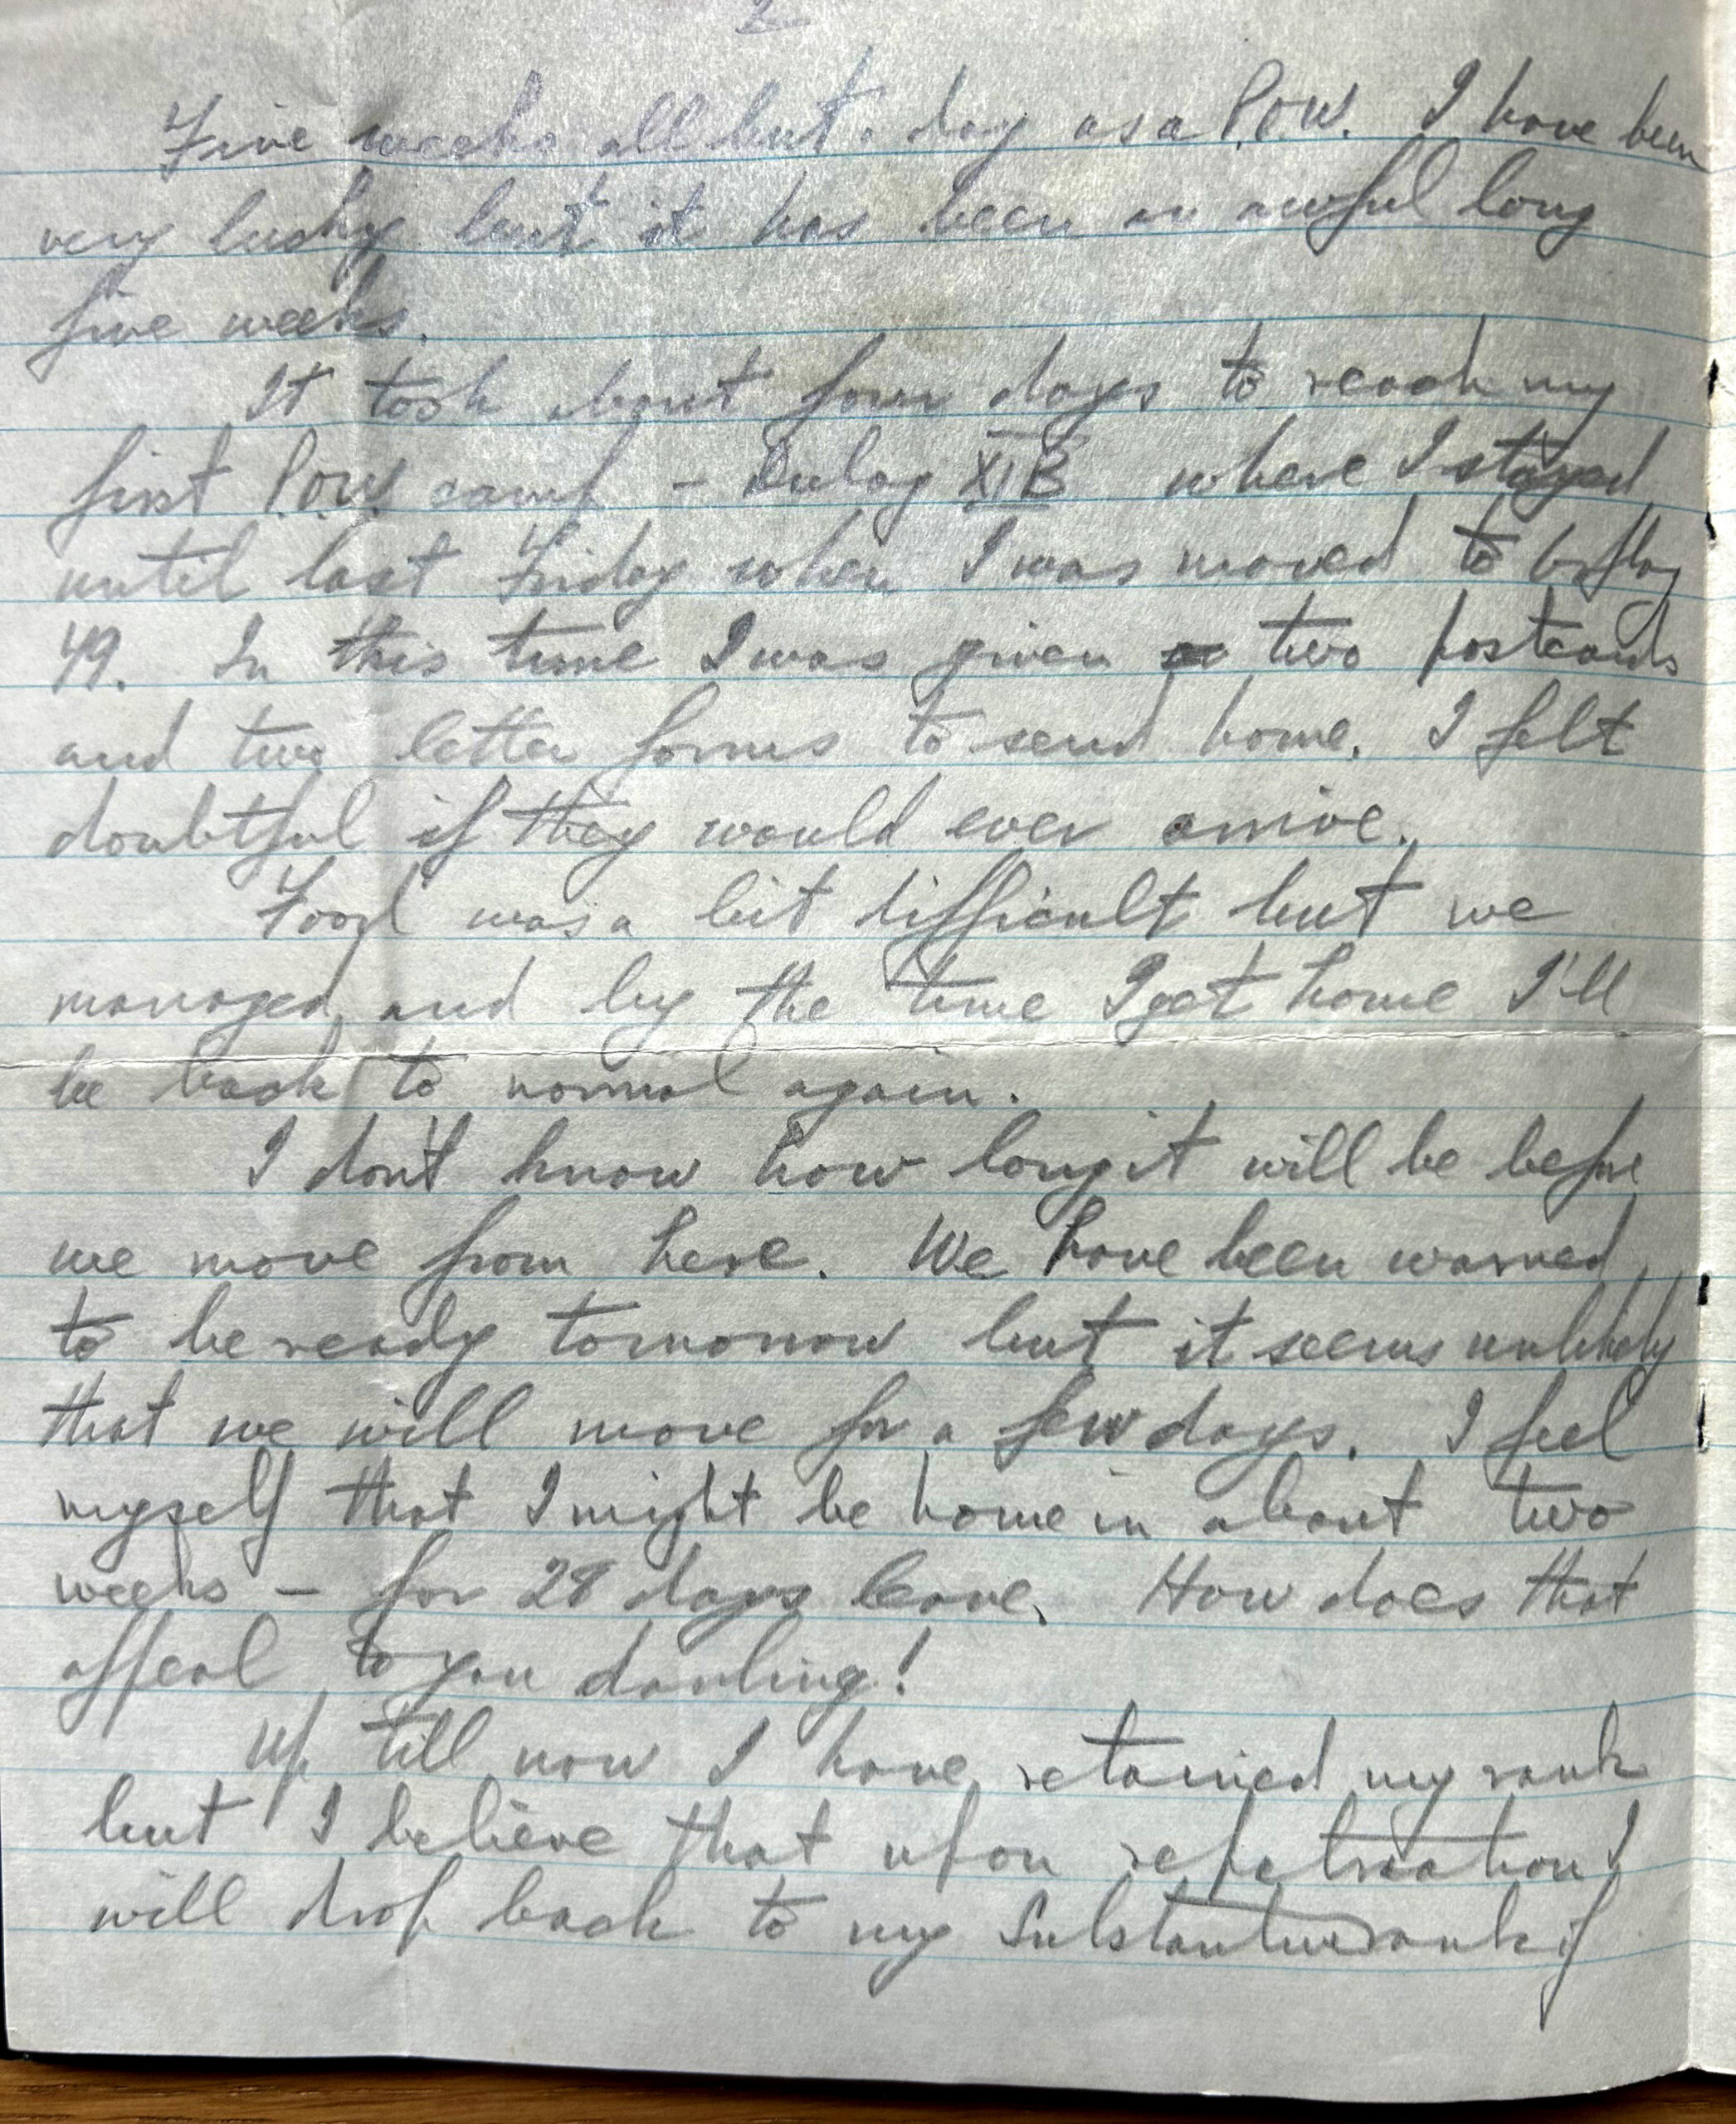 2
Five weeks all but a day as a P.O.W. I have been
very lucky but it has been an awful long
five weeks.
It took about four days to reach my
first P.O.W. camp - Dulag XIB where I stayed
until last Friday when I was moved to Oflag
79. In this time I was given two postcards
and two letter forms to send home. I felt
doubtful if they would ever arrive.
Food was a bit difficult but we
managed and by the time I get home I'll
be back to normal again.
I don't know how long it will be before
we move from here. We have been warned
to be ready tomorrow but it seems unlikely
that we will move for a few days. I feel
myself that I might be home in about two
weeks - for 28 days leave. How does that
appeal to you darling!
Up till now I have retained my rank
but I believe that upon repatriation I
will drop back to my Substantive rank if